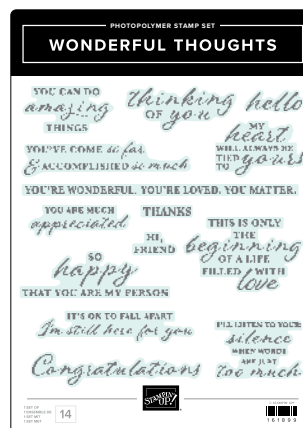 PHOTOPOLYMER STAMP SET
WONDERFUL THOUGHTS
YOU CAN DO
amazing
THINGS
thinking
OF you
hello
MY
heart
WILL ALWAYS BE
TIED
TO yours
YOU'VE COME so far
& ACCOMPLISHED so much
YOU'RE WONDERFUL. YOU'RE LOVED. YOU MATTER.
YOU ARE MUCH
appreciated
THANKS
HI,
FRIEND
THIS IS ONLY
THE
beginning
OF A LIFE
FILLED WITH
love
SO
happy
THAT YOU ARE MY PERSON
IT'S OK TO FALL APART
I'm still here for you
I'LL LISTEN TO YOUR
silence
WHEN WORDS
ARE JUST
too much
Congratulations
STAMPIN' UP!
14
© STAMPIN' UP!
161899